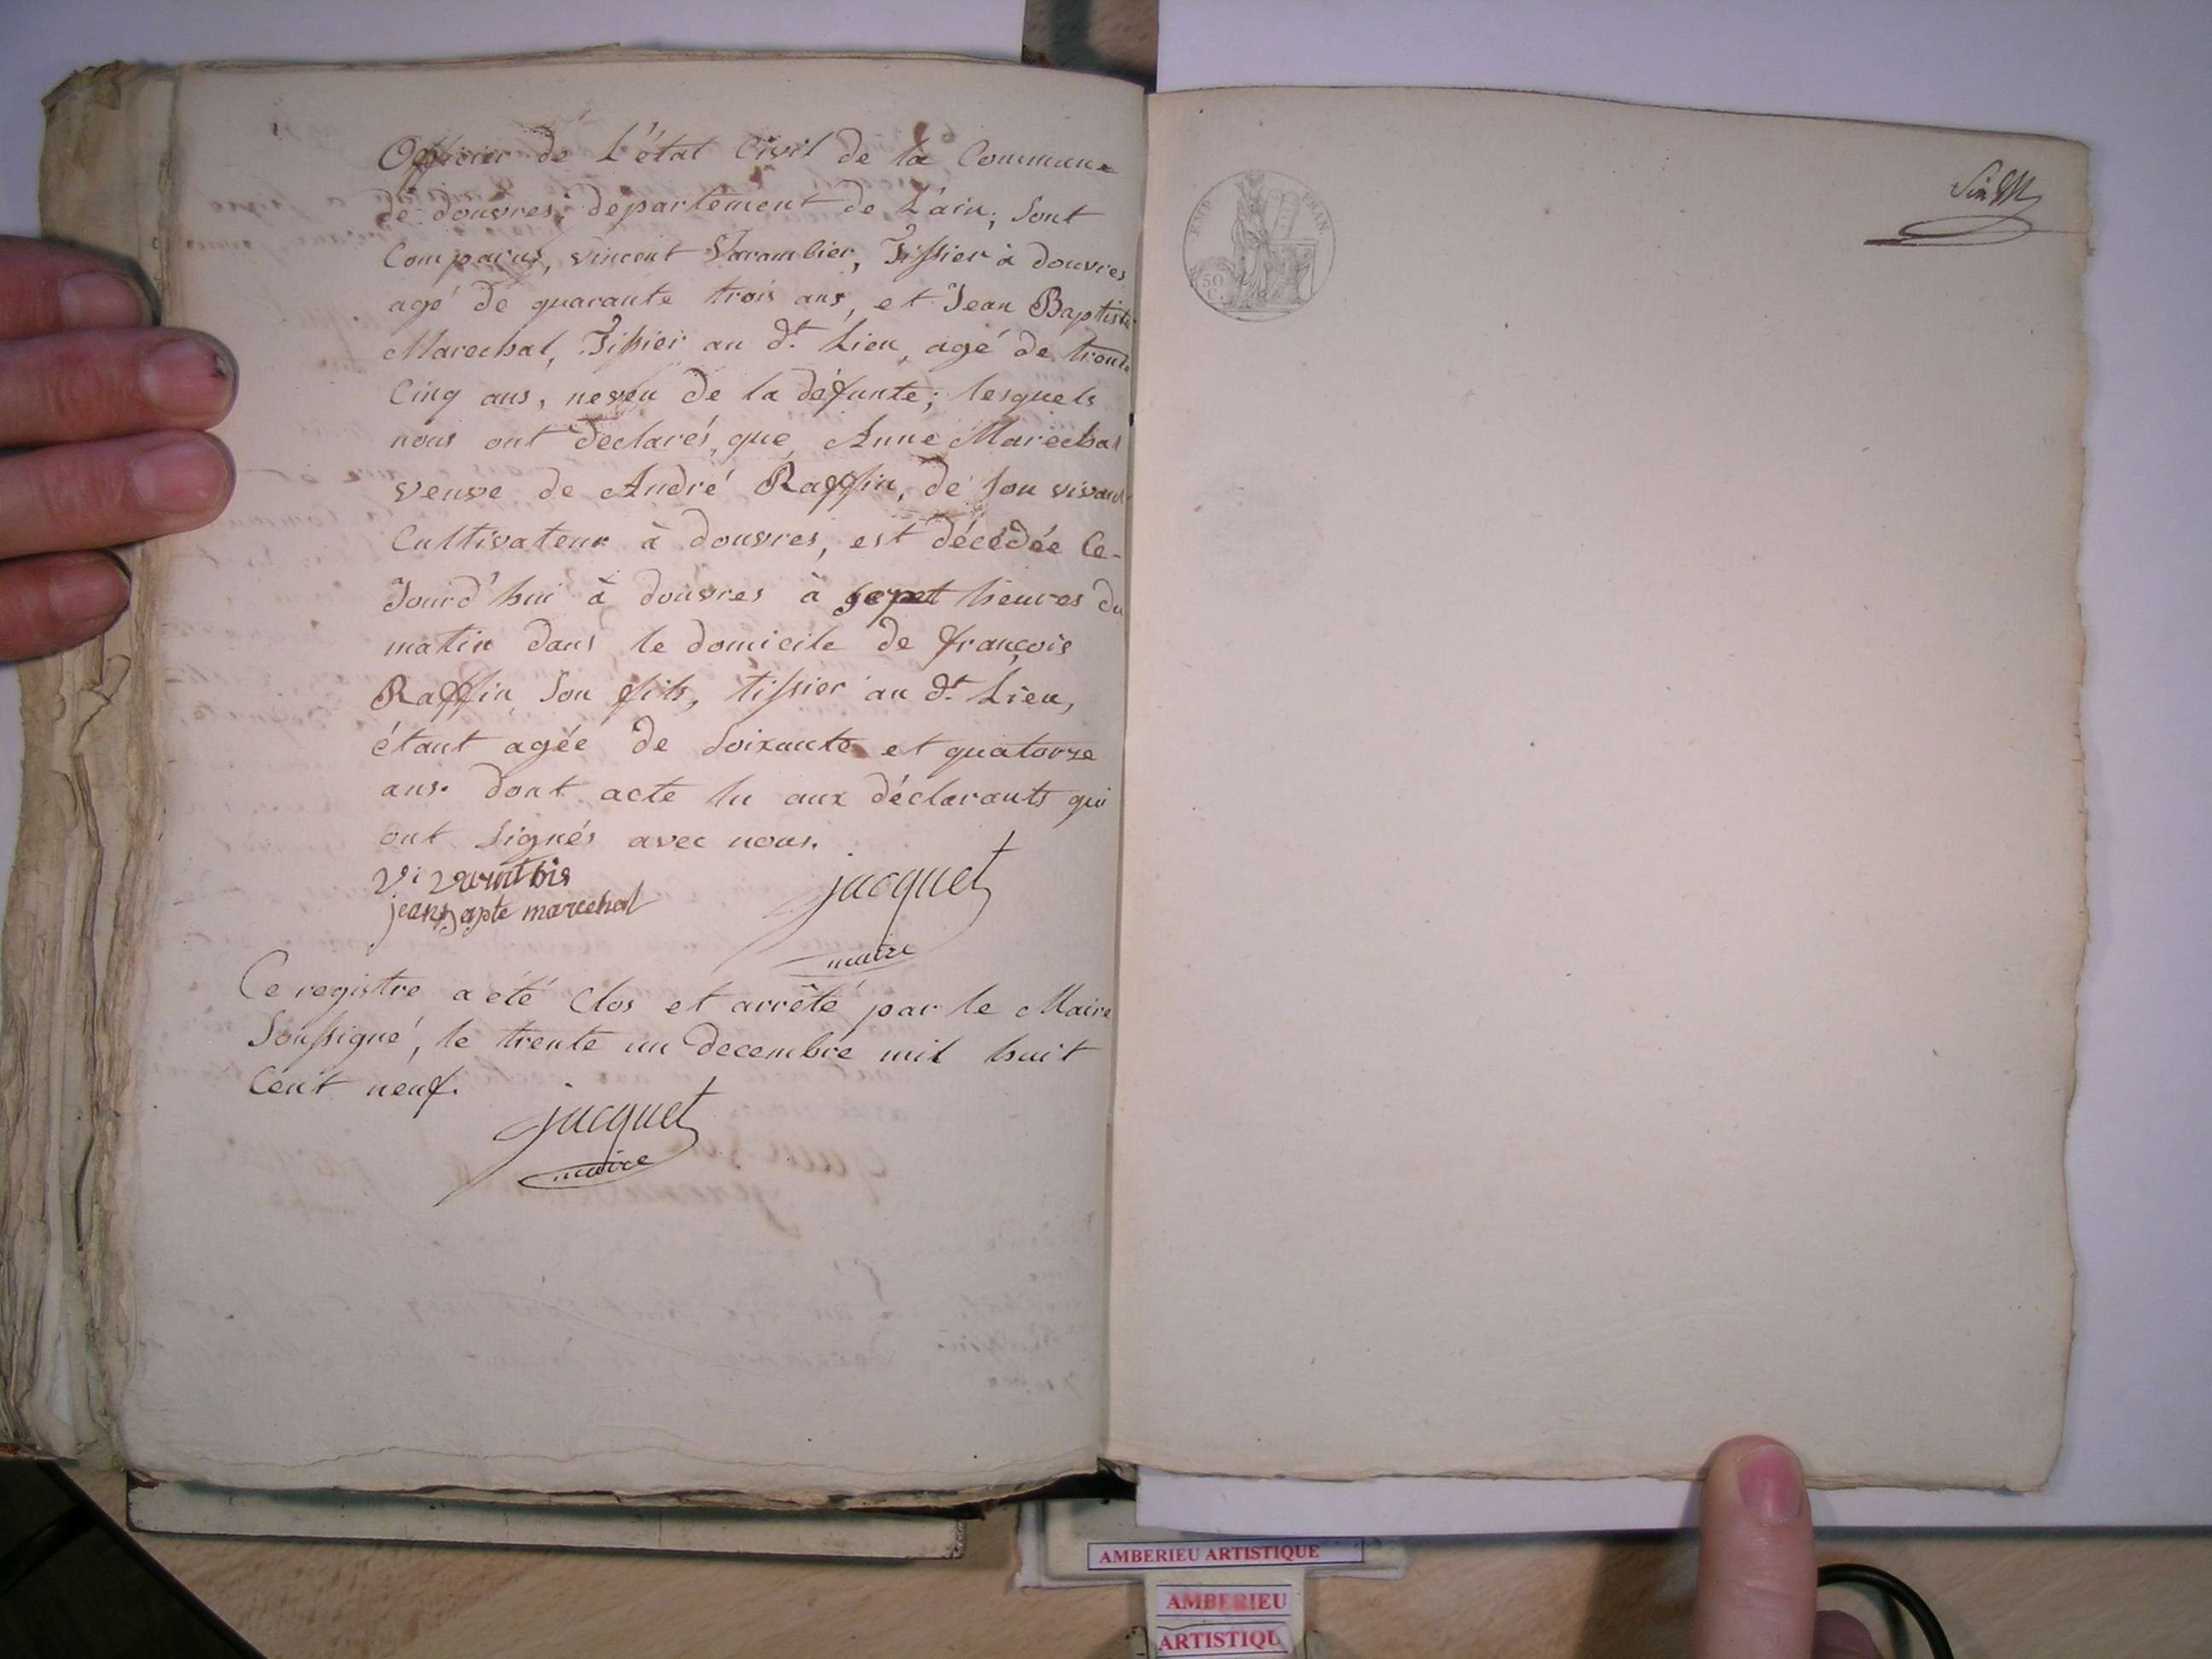 Officier de L'état Civil de la Commune
de douvres; departement de L'ain, sont
Comparus, vincent Varambier, Tissier à douvres
agé de quarante trois ans, et Jean Baptiste
Marechal, Tissier au dt. Lieu, agé de trente
Cinq ans, neveu de la défunte; lesquels
nous ont declarés, que, Anne Marechal
veuve de André Raffin, de son vivant
Cultivateur à douvres, est décédée Ce-
Jourd'hui à douvres à sept heures du
matin dans le domicile de françois
Raffin son fils, tissier au dt. Lieu,
étant agée de soixante et quatorze
ans. dont acte lu aux déclarants qui
ont signés avec nous.
jean bapte marechal
jacquet
maire
Ce registre a été Clos et arrêté par le Maire
Soussigné, le trente un decembre mil huit
Cent neuf.
jacquet
maire
EMP. FRAN.
50
C.
AMBERIEU ARTISTIQUE
AMBERIEU
ARTISTIQU